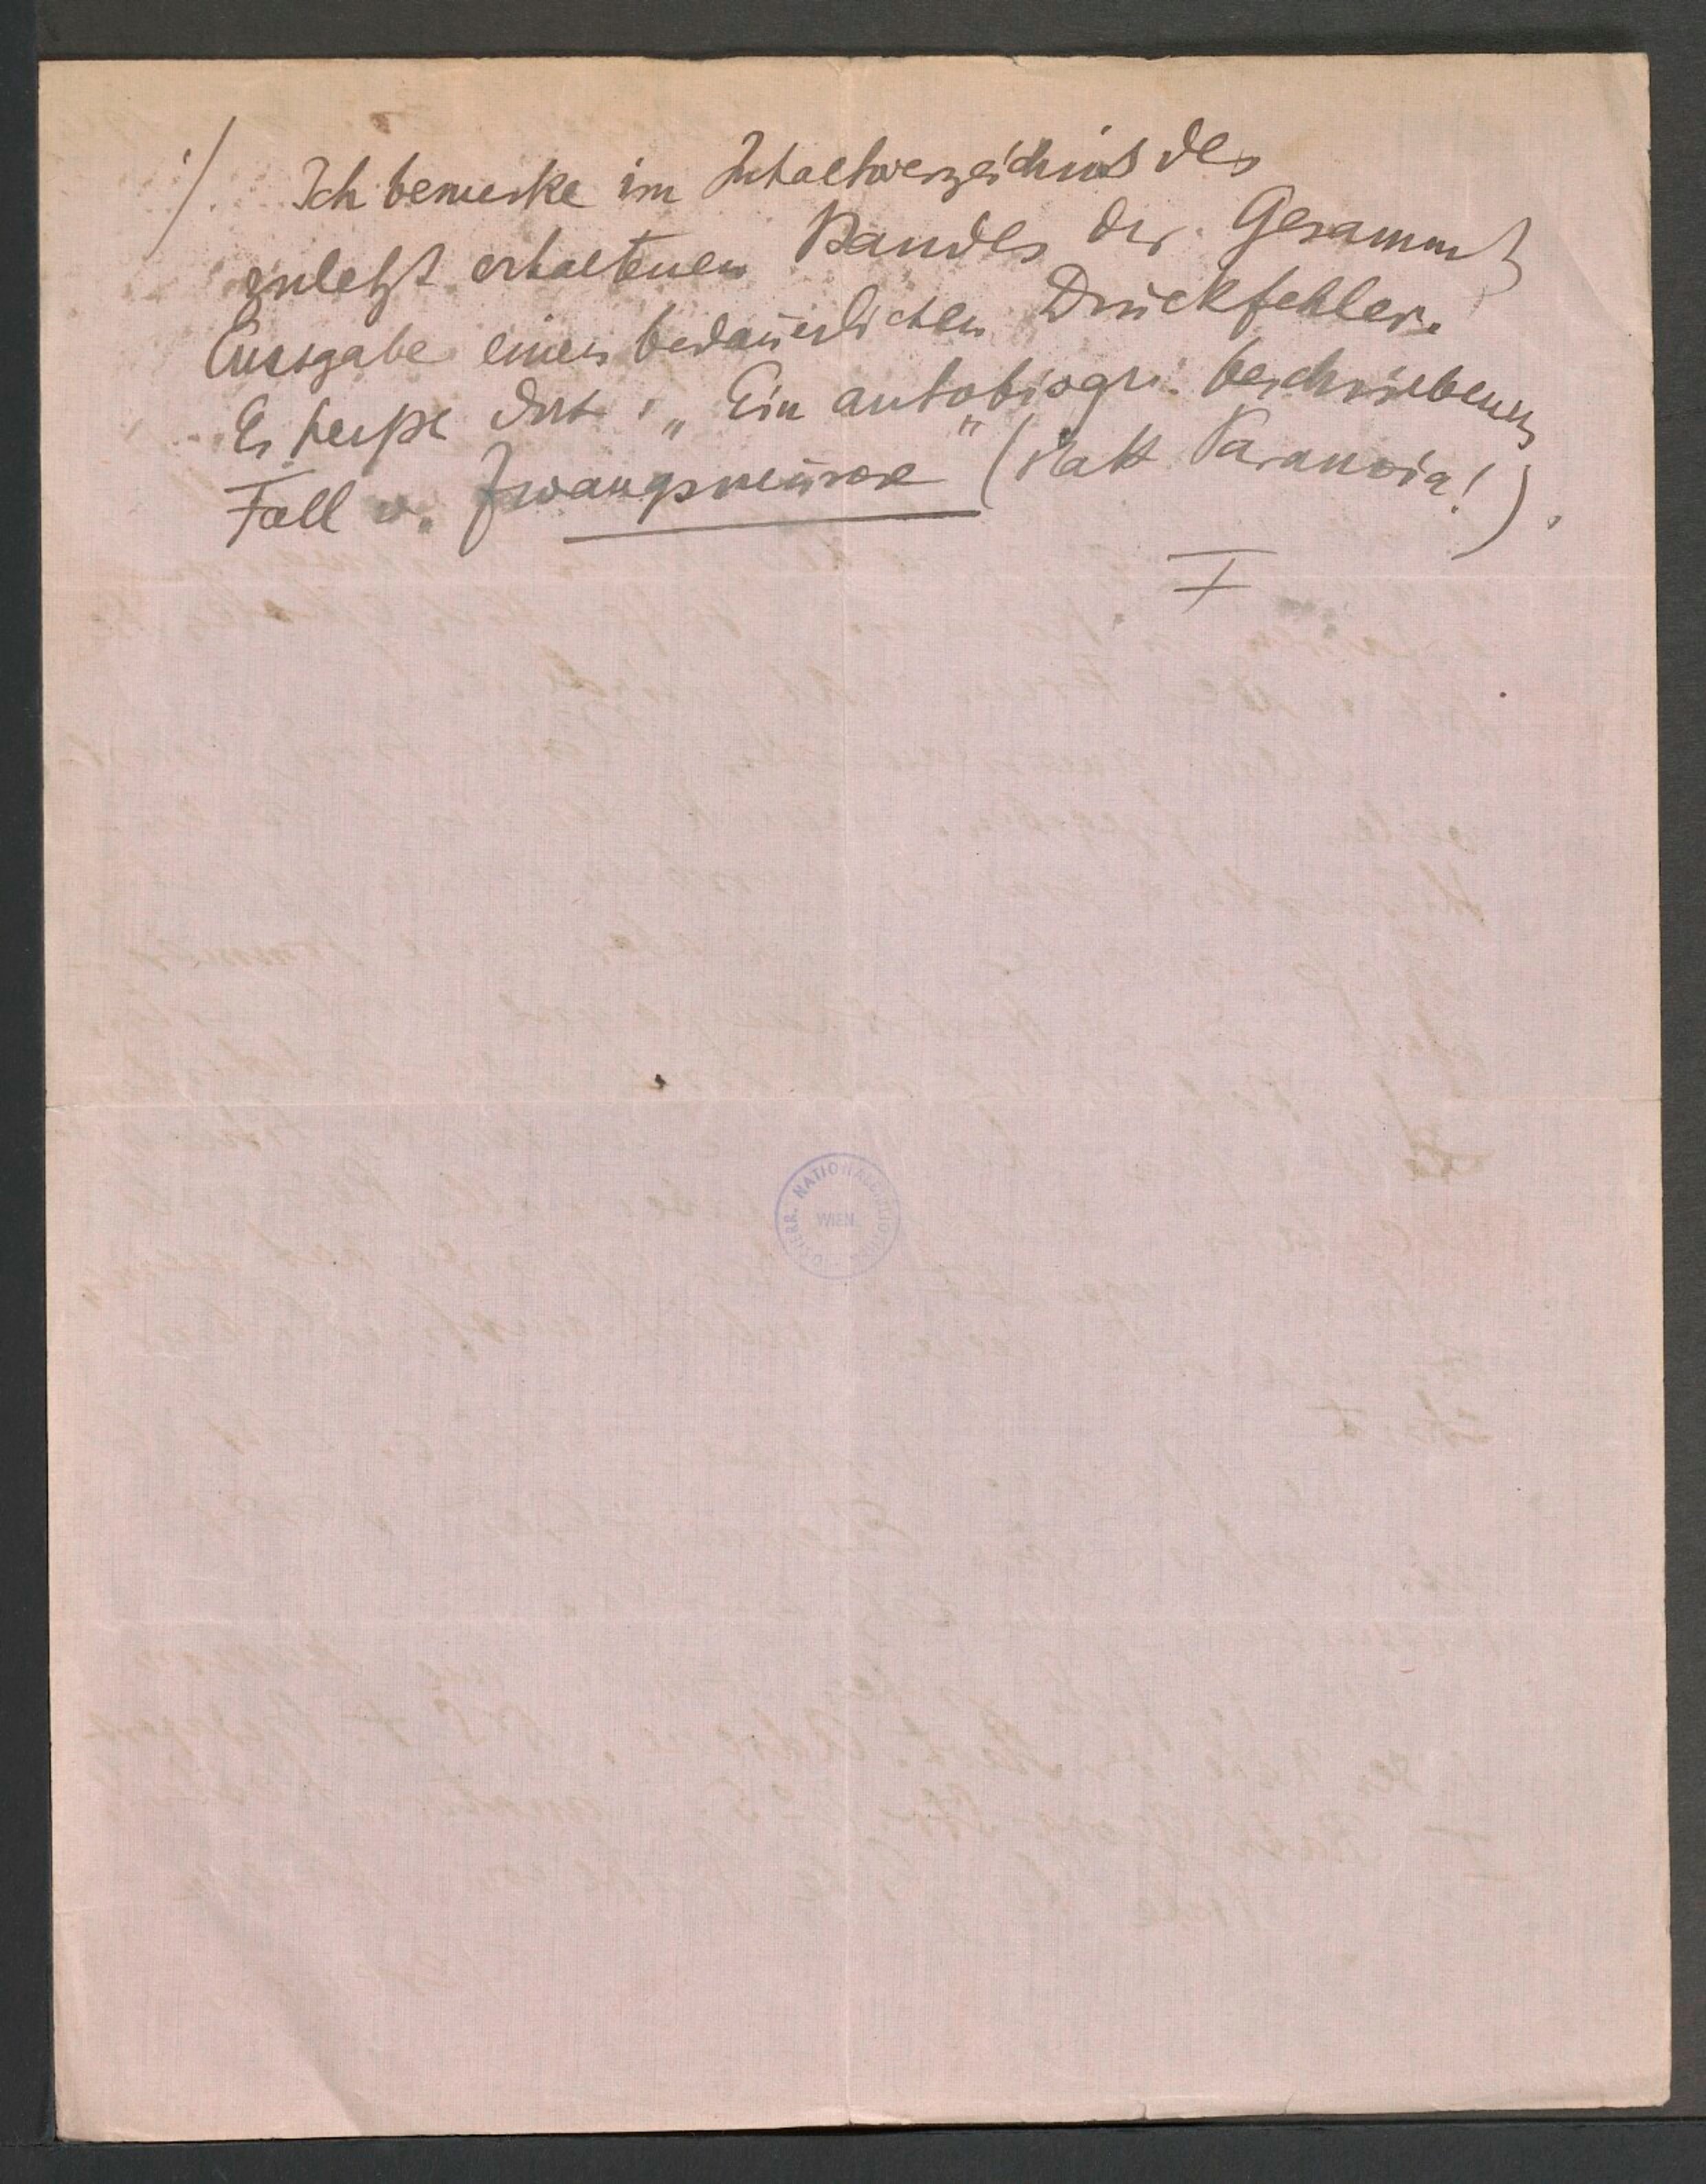 ·/. Ich bemerke im Inhaltverzeichnis des
zuletzt erhaltenen Bandes der Gesammt
Ausgabe einen bedauerlichen Druckfehler.
Es heißt dort: „Ein autobiogr. beschriebener
Fall v. Zwangsneurose" (statt Paranoia!).
ÖSTERR. NATIONALBIBLIOTHEK
WIEN